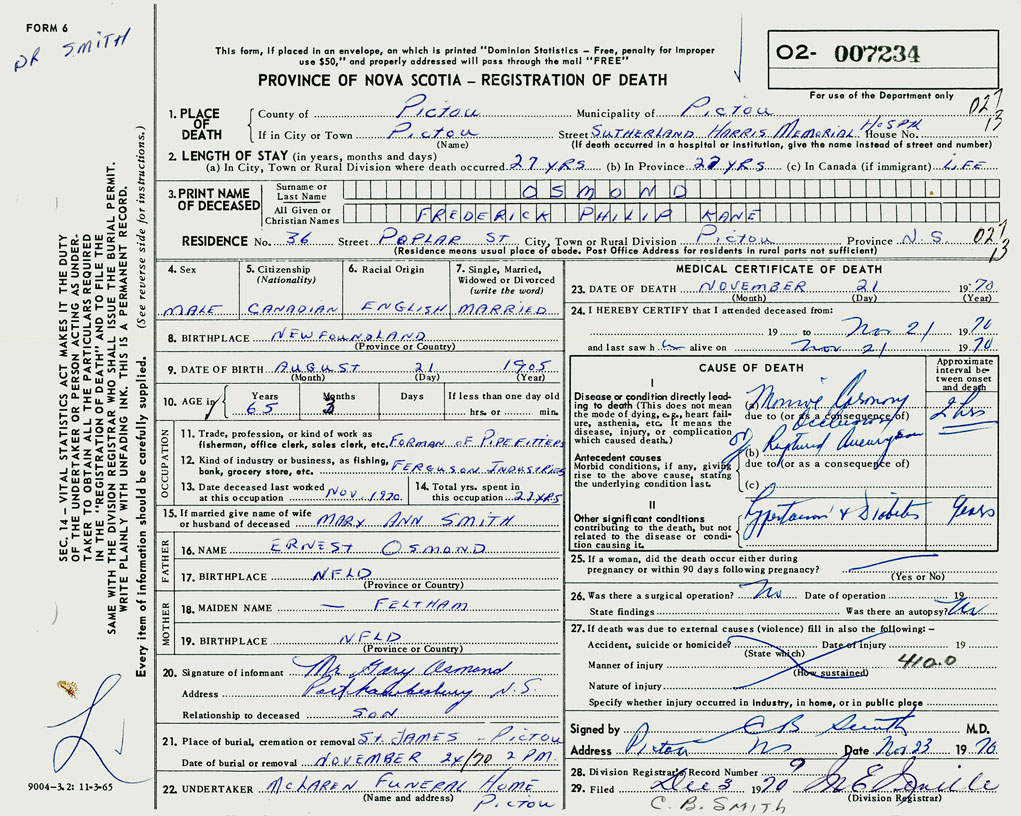 FORM 6
DR SMITH
This form, if placed in an envelope, on which is printed "Dominion Statistics – Free, penalty for improper
use $50," and properly addressed will pass through the mail "FREE"
PROVINCE OF NOVA SCOTIA – REGISTRATION OF DEATH
02- 007234
For use of the Department only
027
13
1. PLACE OF DEATH
County of Pictou Municipality of Pictou
If in City or Town Pictou Street SUTHERLAND HARRIS MEMORIAL HOSPH House No.
(Name) (If death occurred in a hospital or institution, give the name instead of street and number)
2. LENGTH OF STAY (in years, months and days)
(a) In City, Town or Rural Division where death occurred 27 YRS (b) In Province 27 YRS (c) In Canada (if immigrant) LIFE
3. PRINT NAME OF DECEASED
Surname or Last Name OSMOND
All Given or Christian Names FREDERICK PHILIP KANE
RESIDENCE No. 36 Street POPLAR ST City, Town or Rural Division Pictou Province N.S. 027
13
(Residence means usual place of abode. Post Office Address for residents in rural parts not sufficient)
SEC. 14 – VITAL STATISTICS ACT MAKES IT THE DUTY
OF THE UNDERTAKER OR PERSON ACTING AS UNDER-
TAKER TO OBTAIN ALL THE PARTICULARS REQUIRED
IN THE "REGISTRATION OF DEATH" AND TO FILE THE
SAME WITH THE DIVISION REGISTRAR WHO SHALL ISSUE THE BURIAL PERMIT.
WRITE PLAINLY WITH UNFADING INK. THIS IS A PERMANENT RECORD.
Every item of information should be carefully supplied. (See reverse side for instructions.)
4. Sex MALE
5. Citizenship (Nationality) CANADIAN
6. Racial Origin ENGLISH
7. Single, Married, Widowed or Divorced (write the word) MARRIED
8. BIRTHPLACE NEWFOUNDLAND
(Province or Country)
9. DATE OF BIRTH AUGUST 21 1905
(Month) (Day) (Year)
10. AGE in Years 65 Months 3 Days If less than one day old hrs. or min.
OCCUPATION
11. Trade, profession, or kind of work as
fisherman, office clerk, sales clerk, etc. FORMAN OF PIPEFITTERS
12. Kind of industry or business, as fishing,
bank, grocery store, etc. FERGUSON INDUSTRIES
13. Date deceased last worked at this occupation NOV. 1970
14. Total yrs. spent in this occupation 27 YRS
15. If married give name of wife
or husband of deceased MARY ANN SMITH
FATHER
16. NAME ERNEST OSMOND
17. BIRTHPLACE NFLD
(Province or Country)
MOTHER
18. MAIDEN NAME — FELTHAM
19. BIRTHPLACE NFLD
(Province or Country)
20. Signature of informant Mr. Gary Osmond
Address Port Hawkesbury N.S.
Relationship to deceased SON
21. Place of burial, cremation or removal ST. JAMES - PICTOU
Date of burial or removal NOVEMBER 24/70 2 P.M.
22. UNDERTAKER McLAREN FUNERAL HOME
(Name and address) PICTOU
9004-3.2: 11-3-65
MEDICAL CERTIFICATE OF DEATH
23. DATE OF DEATH NOVEMBER 21 1970
(Month) (Day) (Year)
24. I HEREBY CERTIFY that I attended deceased from:
19 to Nov 21 1970
and last saw h alive on Nov 21 1970
CAUSE OF DEATH
Approximate interval between onset and death
I
Disease or condition directly lead-
ing to death (This does not mean
the mode of dying, e.g., heart fail-
ure, asthenia, etc. It means the
disease, injury, or complication
which caused death.)
(a) Coronary
due to (or as a consequence of) 2 hrs
or
Antecedent causes
Morbid conditions, if any, giving
rise to the above cause, stating
the underlying condition last.
(b) Ruptured
due to (or as a consequence of)
(c)
II
Other significant conditions
contributing to the death, but not
related to the disease or condi-
tion causing it.
& Diabetes Years
25. If a woman, did the death occur either during
pregnancy or within 90 days following pregnancy?
(Yes or No)
26. Was there a surgical operation? No Date of operation 19
State findings Was there an autopsy? No
27. If death was due to external causes (violence) fill in also the following: –
Accident, suicide or homicide? Date of injury 19
(State which)
Manner of injury 410.0
(How sustained)
Nature of injury
Specify whether injury occurred in industry, in home, or in public place
Signed by C B Smith M.D.
Address Pictou NS Date Nov. 23 1970
28. Division Registrar's Record Number 9
29. Filed Dec 3 1970
(Division Registrar)
C. B. SMITH